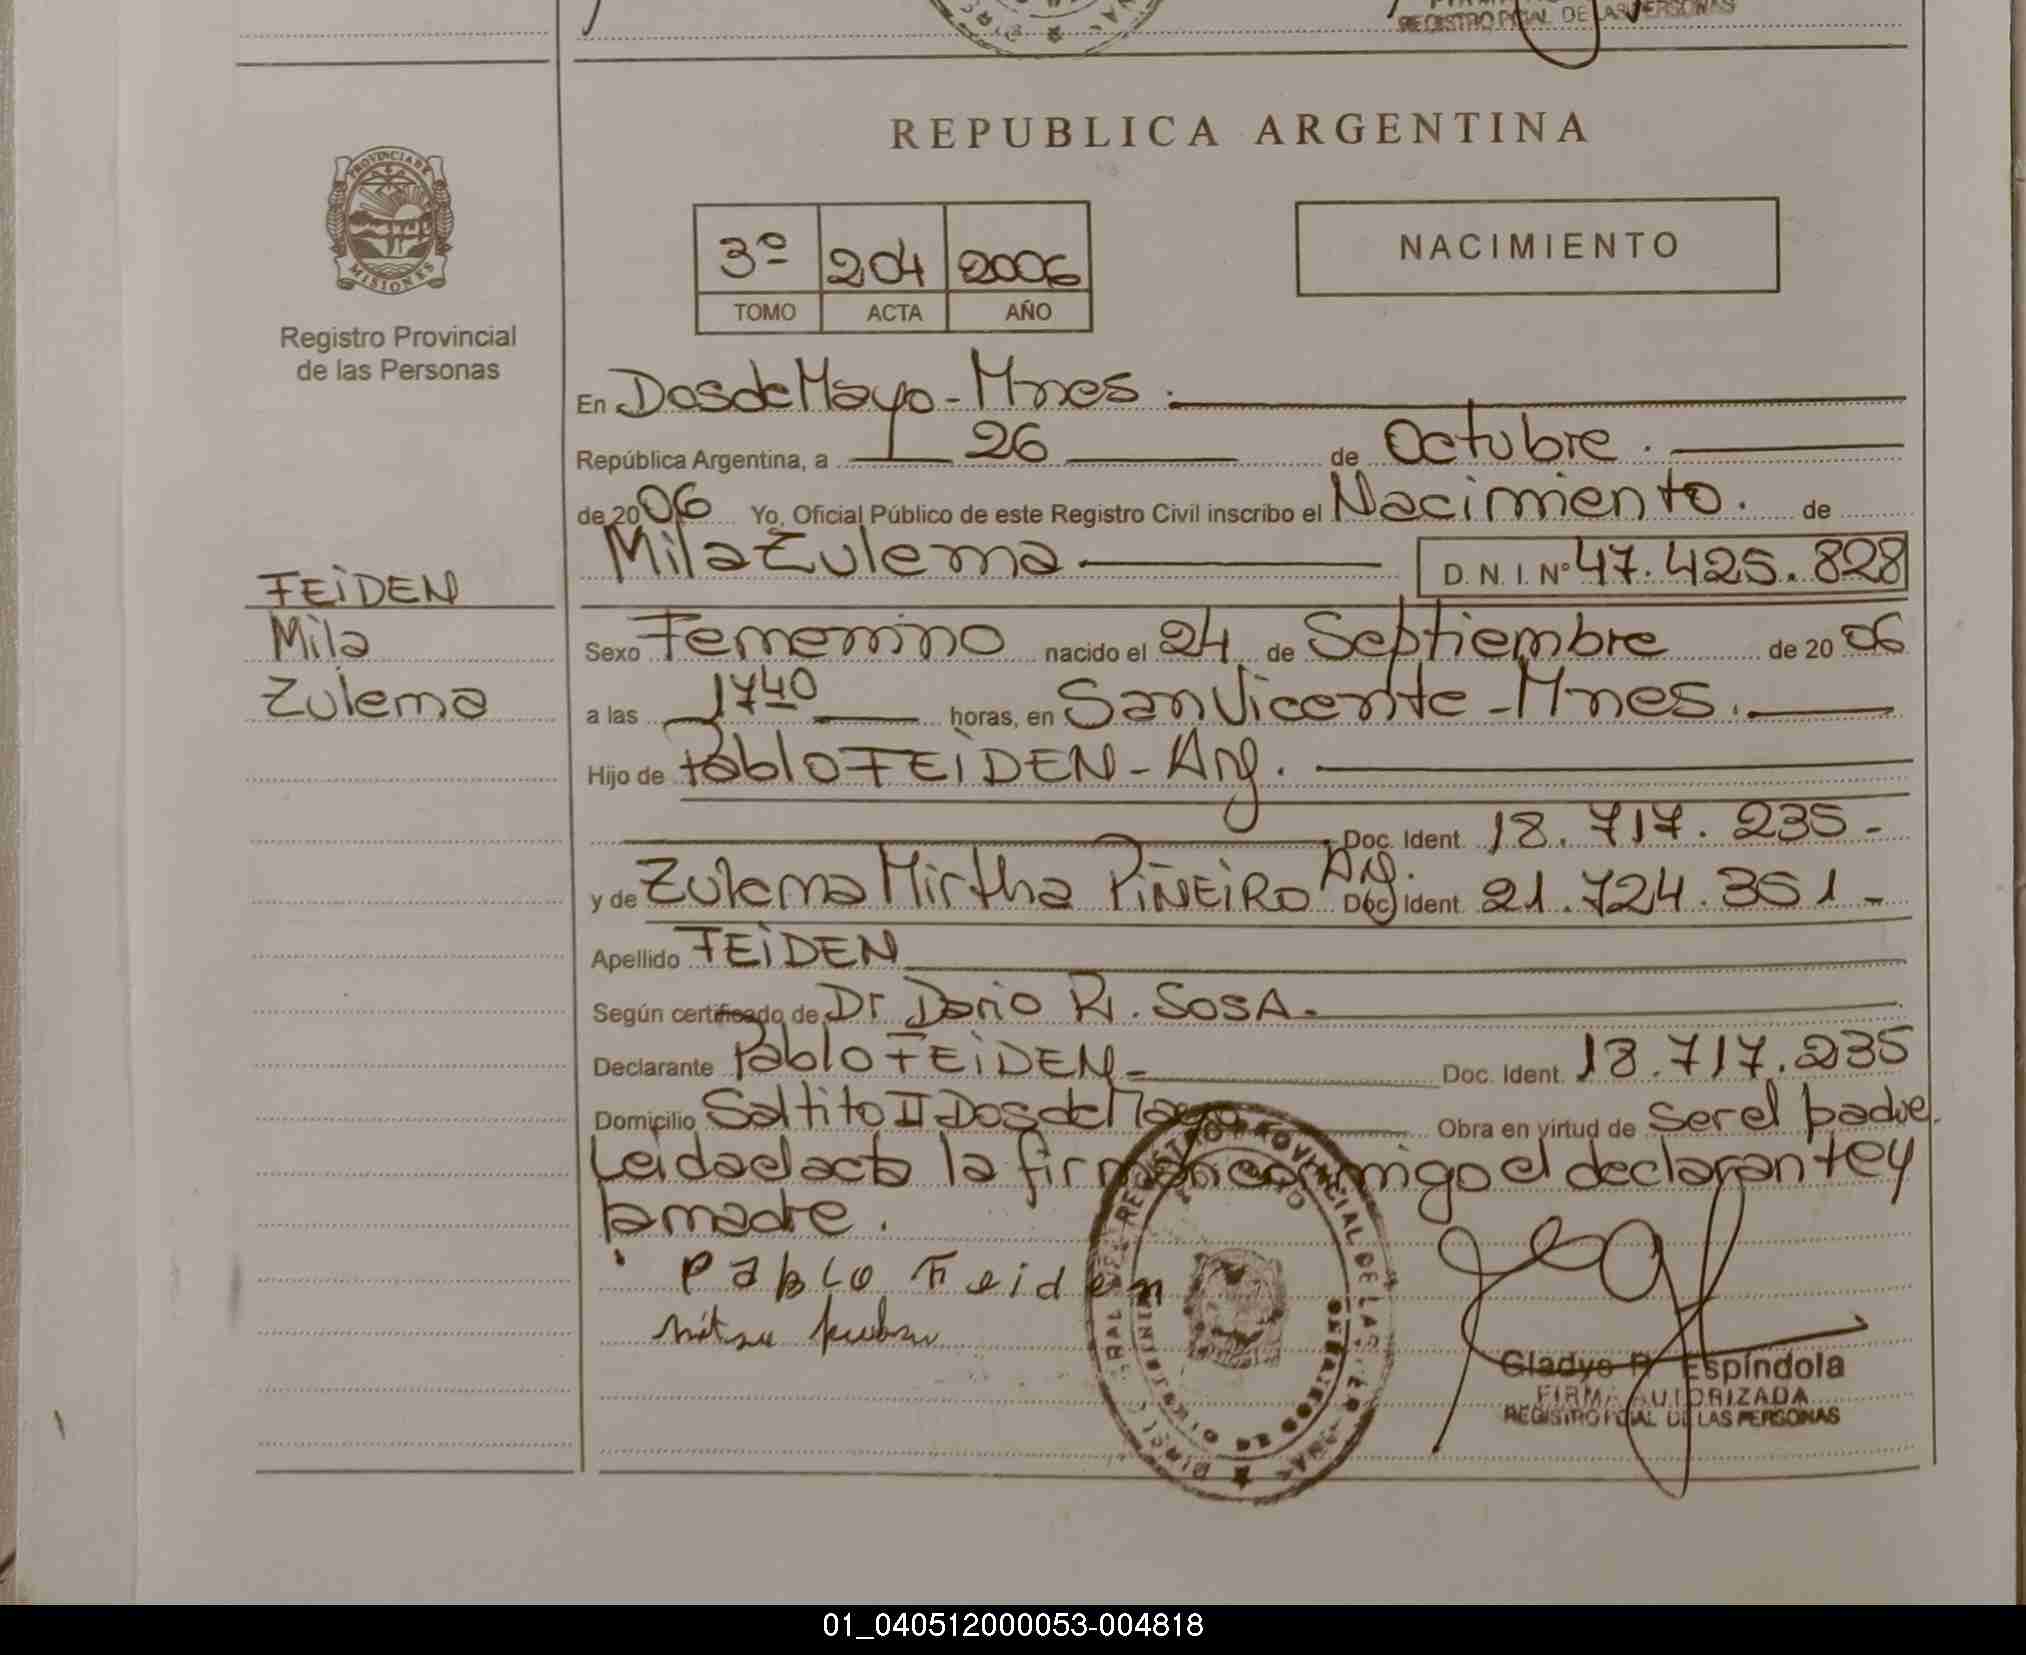 REGISTRO PCIAL DE LAS PERSONAS
REPUBLICA ARGENTINA
PROVINCIA DE MISIONES
Registro Provincial
de las Personas
3º 204 2006
TOMO ACTA AÑO
NACIMIENTO
En Dos de Mayo - Mnes.
República Argentina, a 26 de Octubre.
de 2006 Yo, Oficial Público de este Registro Civil inscribo el Nacimiento. de
Mila Zulema D. N. I. Nº 47.425.828
FEiDEN
Mila
Zulema
Sexo Femenino nacido el 24 de Septiembre de 2006
a las 17 40 horas, en San Vicente - Mnes.
Hijo de Pablo FEiDEN - Arg.
Doc. Ident. 18.717.235-
y de Zulema Mirtha PiÑEiRO Arg. Doc. Ident. 21.724.351-
Apellido FEiDEN
Según certificado de Dr Dario R. SOSA.
Declarante Pablo FEiDEN - Doc. Ident. 18.717.235
Domicilio Saltito II Dos de Mayo Obra en virtud de ser el padre.
Leida el acta la firman conmigo el declarante y
la madre.
Pablo Feiden
Gladys R. Espíndola
FIRMA AUTORIZADA
REGISTRO PCIAL DE LAS PERSONAS
01_040512000053-004818